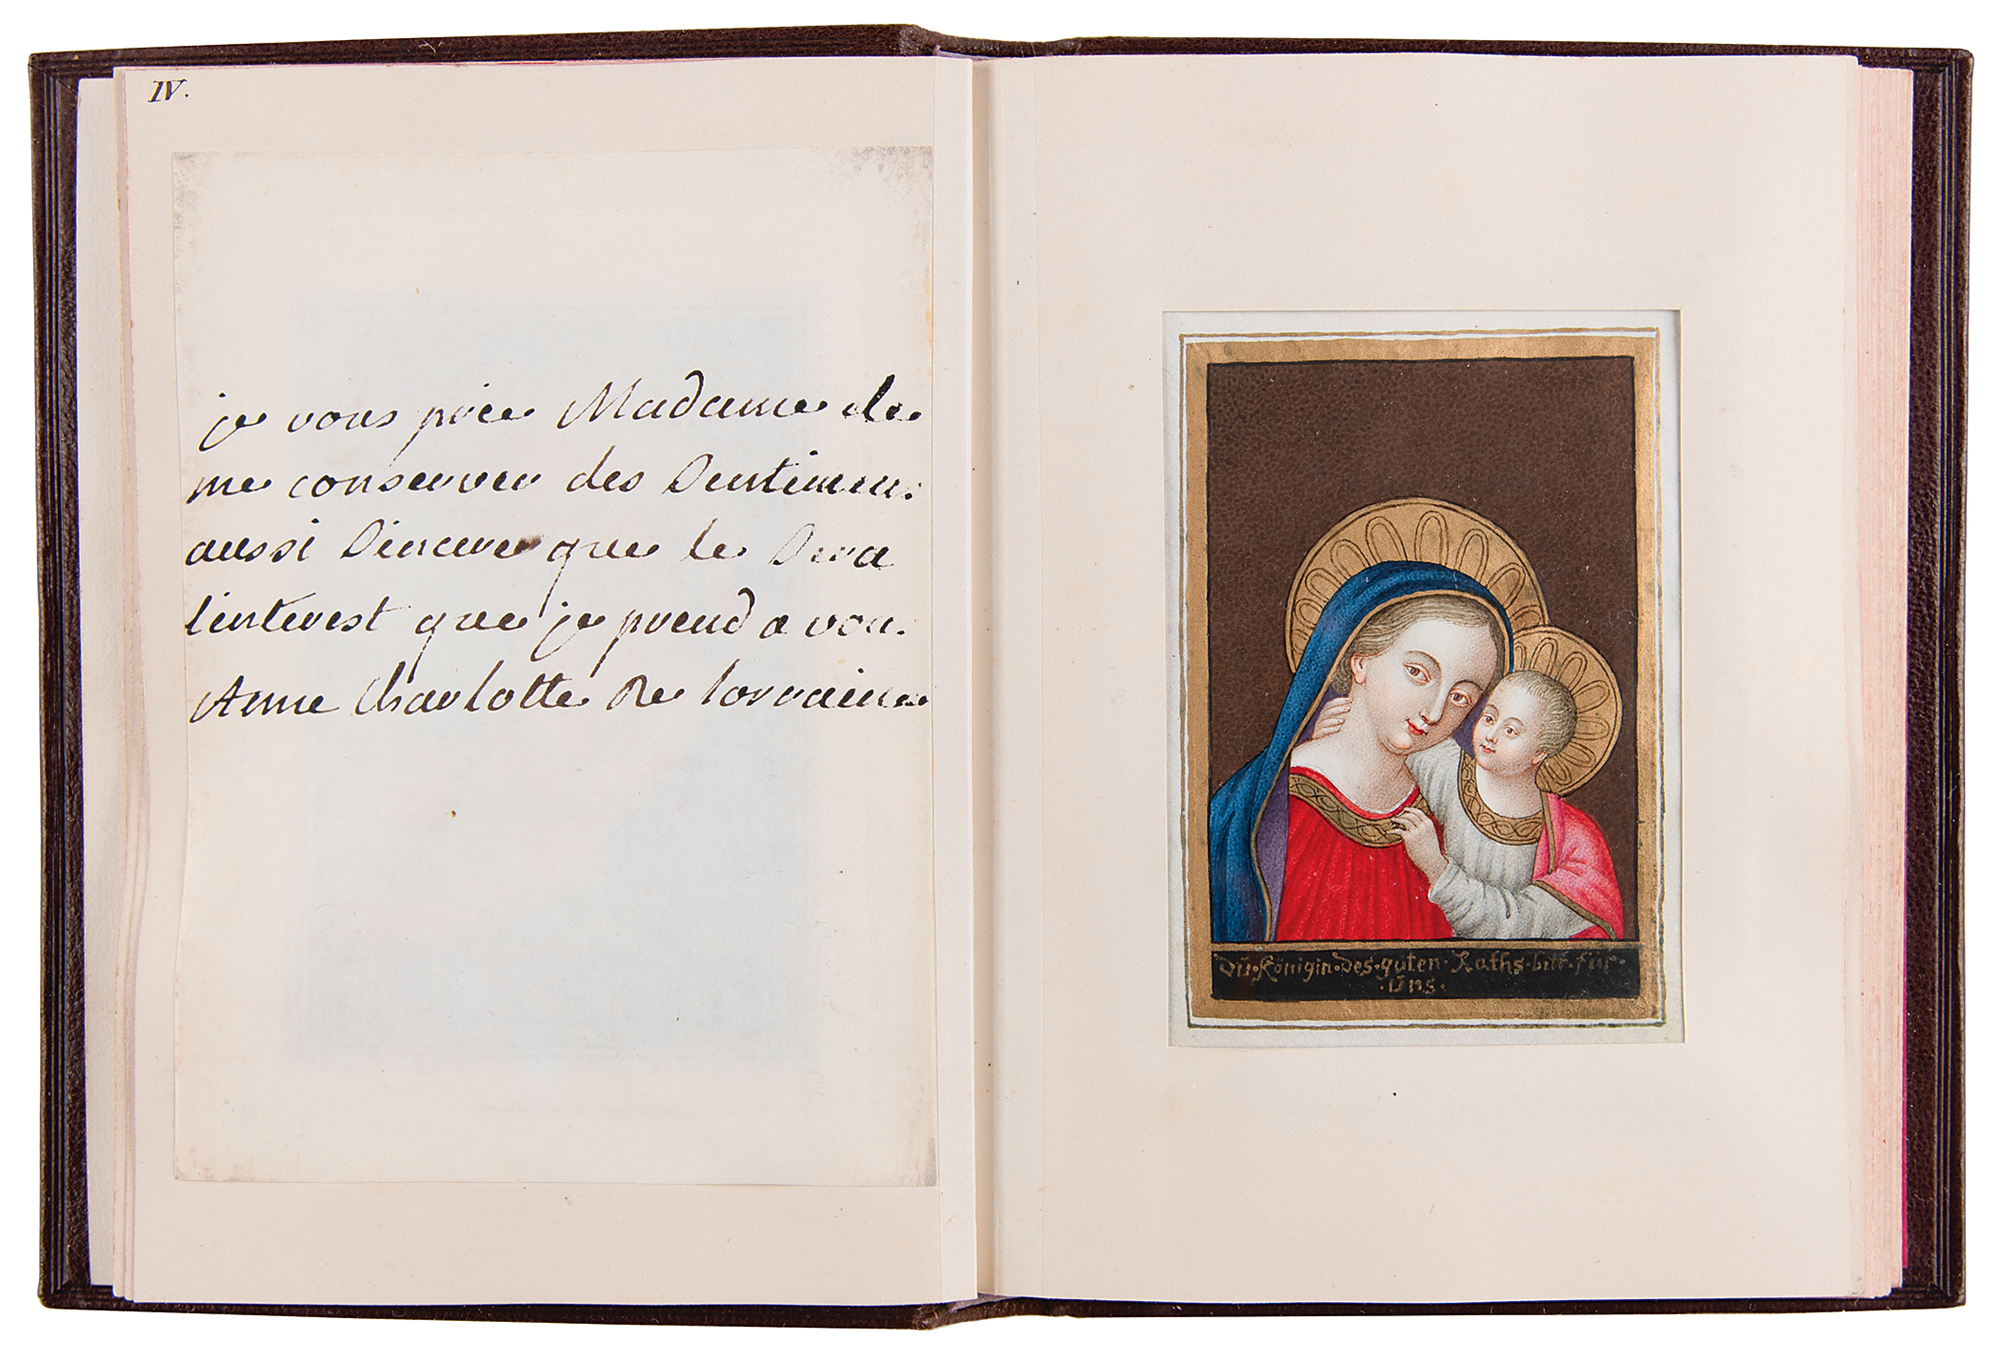 IV.
je vous prie Madame de
me conserver des Sentimens
aussi Sincere que le Sera
l'interest que je prend a vous
Anne Charlotte De lorraine
Dū·Königin·des·guten·Raths·bitt·für·
·Uns·